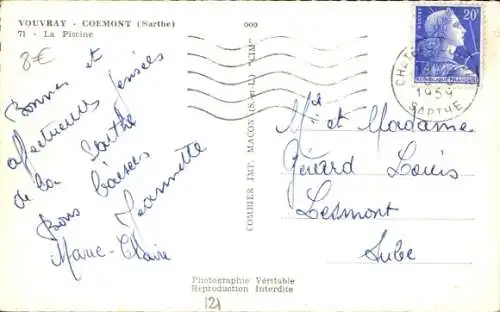 VOUVRAY - COEMONT (Sarthe)
71 - La Piscine
000
8€
Bonnes et
affectueuses pensées
de la Sarthe
Bons baisers
Jeannette
Marie-Claire
COMBIER IMP. MACON (S.-et-L.) "CIM"
20F
POSTES
REPUBLIQUE FRANÇAISE
1959
SARTHE
et Madame
Gérard Louis
Lesmont
Aube
Photographie Véritable
Reproduction Interdite
121